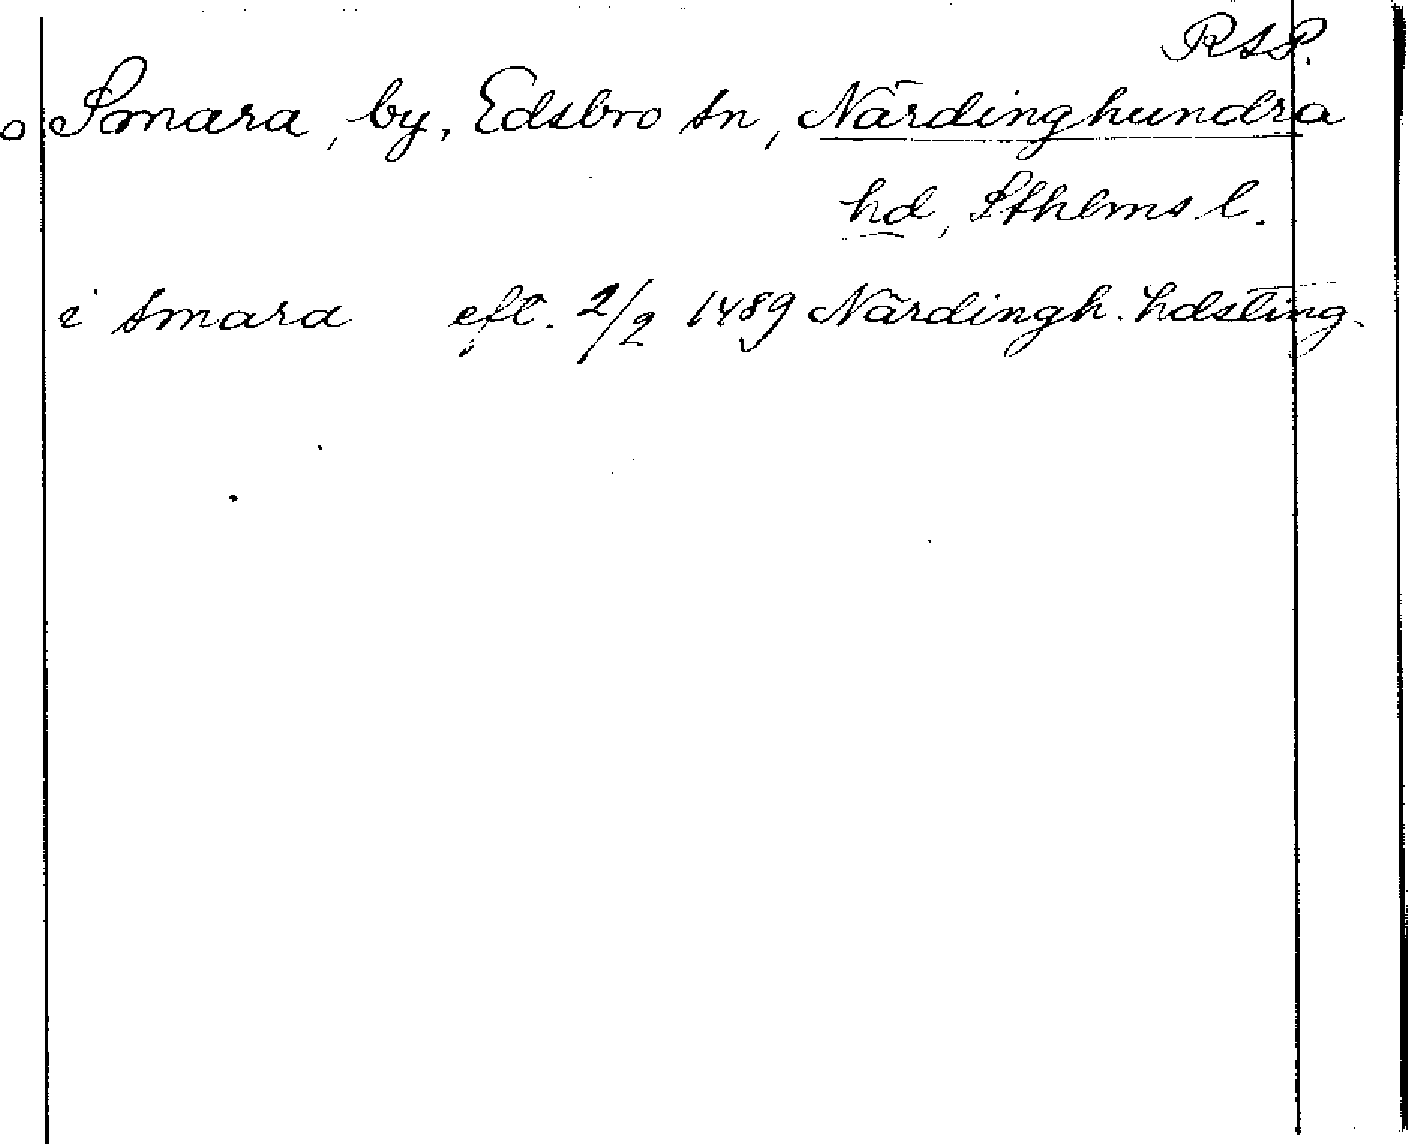 RAP.
o Smara, by, Edsbro sn, Närdinghundra
hd, Sthlms l.
i smara eft. 2/2 1489 Närdingh. hdsting.